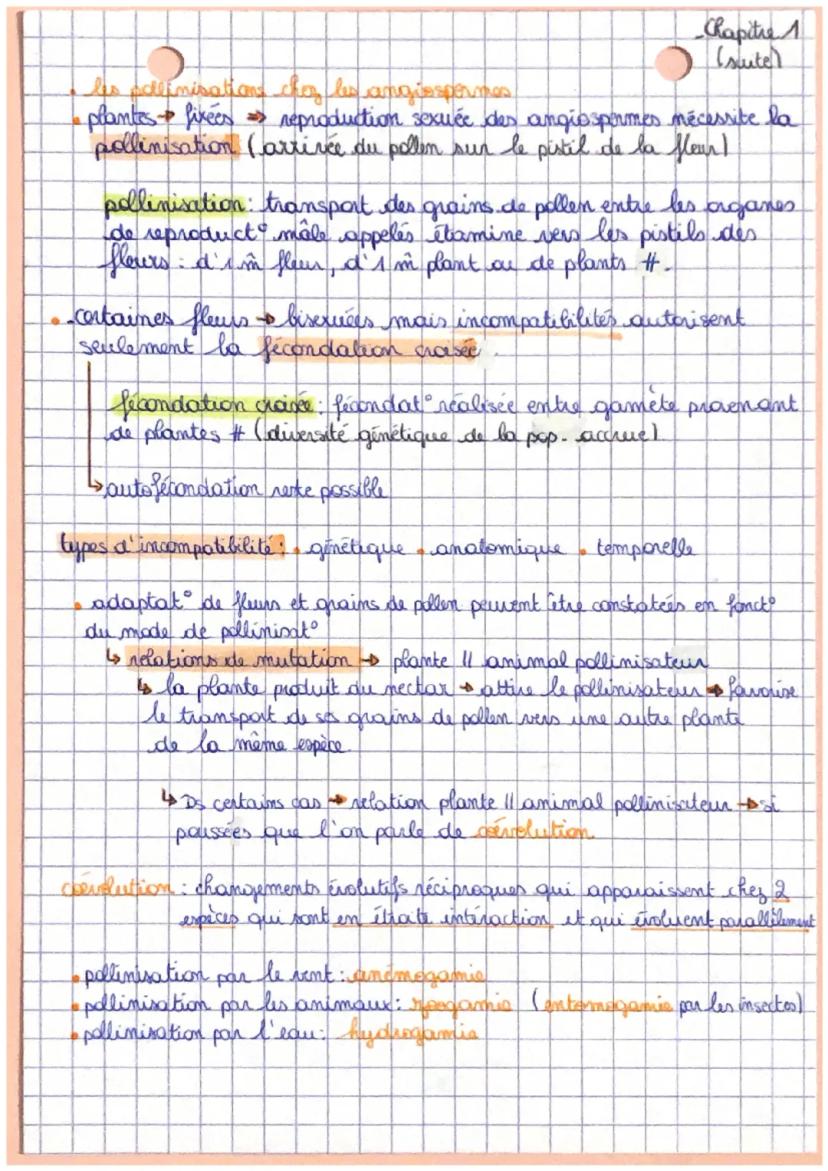 Chapitre 1
(suite)
• les pollinisations chez les angiospermes
• plantes → fixées ⇒ reproduction sexuée des angiospermes nécessite la
pollinisation (arrivée du pollen sur le pistil de la fleur)
pollinisation : transport des grains de pollen entre les organes
de reproduct° mâle appelés étamine vers les pistils des
fleurs : d'1 m̂ fleur, d'1 m̂ plant ou de plants #.
• certaines fleurs → bisexuées mais incompatibilités autorisent
seulement la fécondation croisée.
fécondation croisée : fécondat° réalisée entre gamète provenant
de plantes # (diversité génétique de la pop. accrue)
↳ autofécondation reste possible
types d'incompatibilité : • génétique • anatomique • temporelle
• adaptat° de fleurs et grains de pollen peuvent être constatées en fonct°
du mode de pollinisat°
↳ relations de mutation → plante || animal pollinisateur
↳ la plante produit du nectar → attire le pollinisateur → favorise
le transport de ses grains de pollen vers une autre plante
de la même espèce.
↳ Ds certains cas → relation plante || animal pollinisateur → si
poussées que l'on parle de coévolution
coévolution : changements évolutifs réciproques qui apparaissent chez 2
espèces qui sont en étroite intéraction et qui évoluent parallèlement
• pollinisation par le vent : anémogamie
• pollinisation par les animaux : zoogamie (entomogamie par les insectes)
• pollinisation par l'eau : hydrogamie